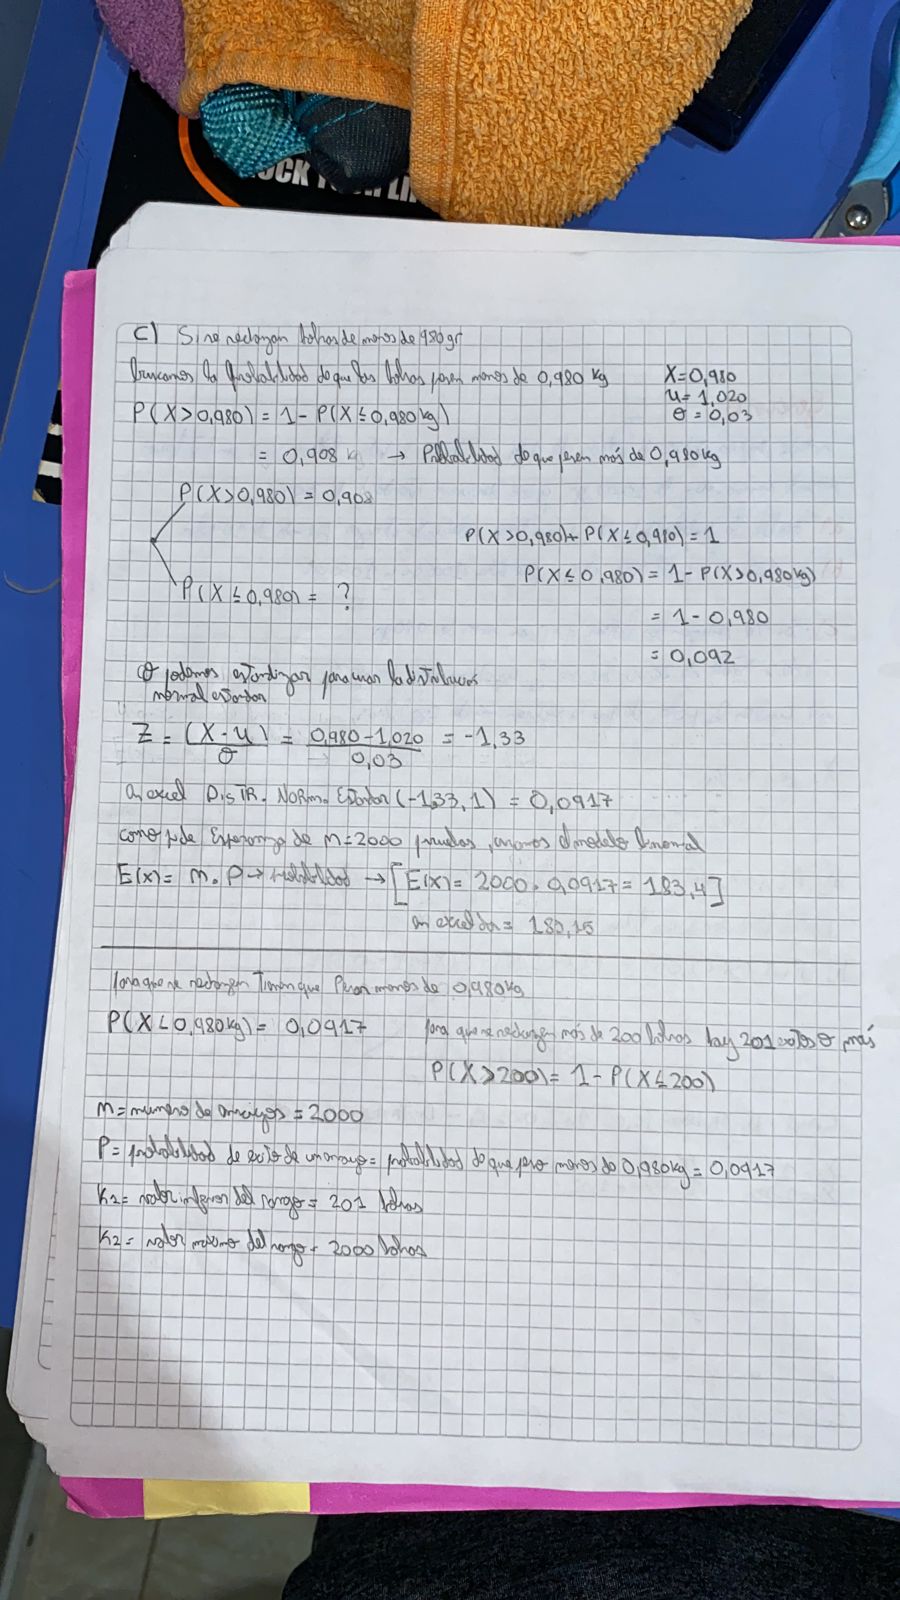 OCK YOUR LI
C) Si se rechazan bolsas de menos de 980gr
buscamos la probabilidad de que las bolsas pesen menos de 0,980 kg
X=0,980
u=1,020
σ=0,03
P(X>0,980) = 1-P(X≤0,980kg)
= 0,908 → Probabilidad de que pesen más de 0,980kg
P(X>0,980) = 0,908
P(X>0,980)+P(X≤0,980)=1
P(X≤0,980) = 1-P(X>0,980kg)
P(X≤0,980) = ?
= 1-0,980
= 0,092
O podemos para usar la
normal
Z = (X-u)/σ = 0,980-1,020/0,03 = -1,33
en excel DISTR. NORM. (-1,33,1) = 0,0917
como pide Esperanza de n=2000 pruebas, usamos el modelo binomial
E(x)= n.P→probabilidad →[E(x)= 2000.0,0917= 183,4]
en excel da=
para que se rechazen Tienen que Pesar menos de 0,980kg
P(X<0,980kg)= 0,0917
para que se rechazen más de 200 bolsas hay 201 o más
P(X>200)= 1-P(X≤200)
n=numero de ensayos=2000
P= probabilidad de exito de un ensayo= probabilidad de que pese menos de 0,980kg=0,0917
K1= valor inferior del rango= 201 bolsas
K2= valor maximo del rango= 2000 bolsas